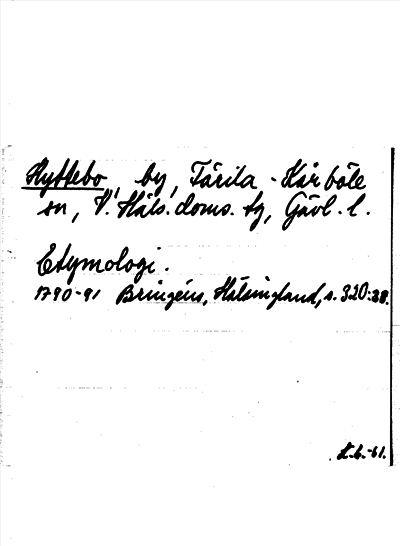 Hyttebo, by, Färila-Kårböle
sn, V. Häls. doms. tg, Gävl. l.
Etymologi.
1790-91 Bringéus, Hälsingland, s. 320:28.